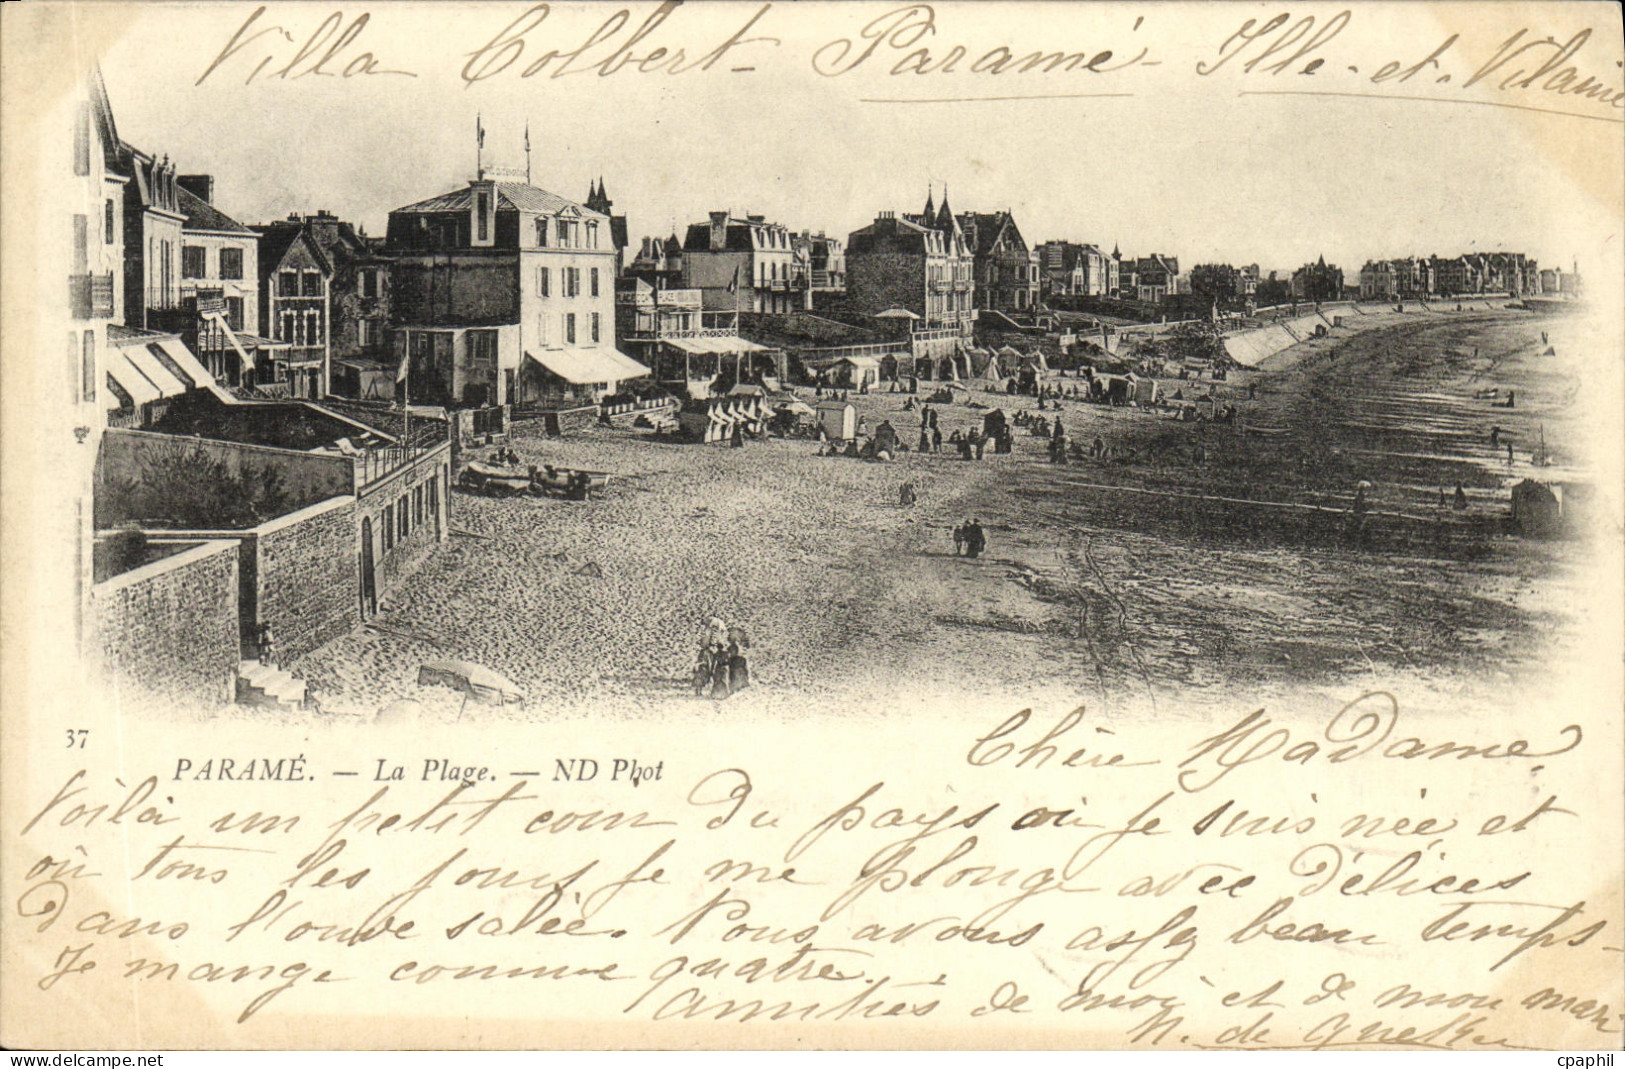 Villa Colbert - Paramé - Ille - et - Vilaine
37
PARAMÉ. — La Plage. — ND Phot
Chère Madame,
Voilà un petit coin du pays où je suis née et
où tous les jours je me plonge avec délices
dans l'onde salée. Nous avons assez beau temps -
Je mange comme quatre.
Amitiés de moi et de mon mari
cpaphil